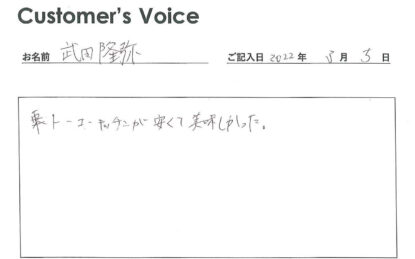 Customer's Voice
お名前 武田隆弥 ご記入日 2022年 5月 5日
東トーコーキッチンが安くて美味しかった。